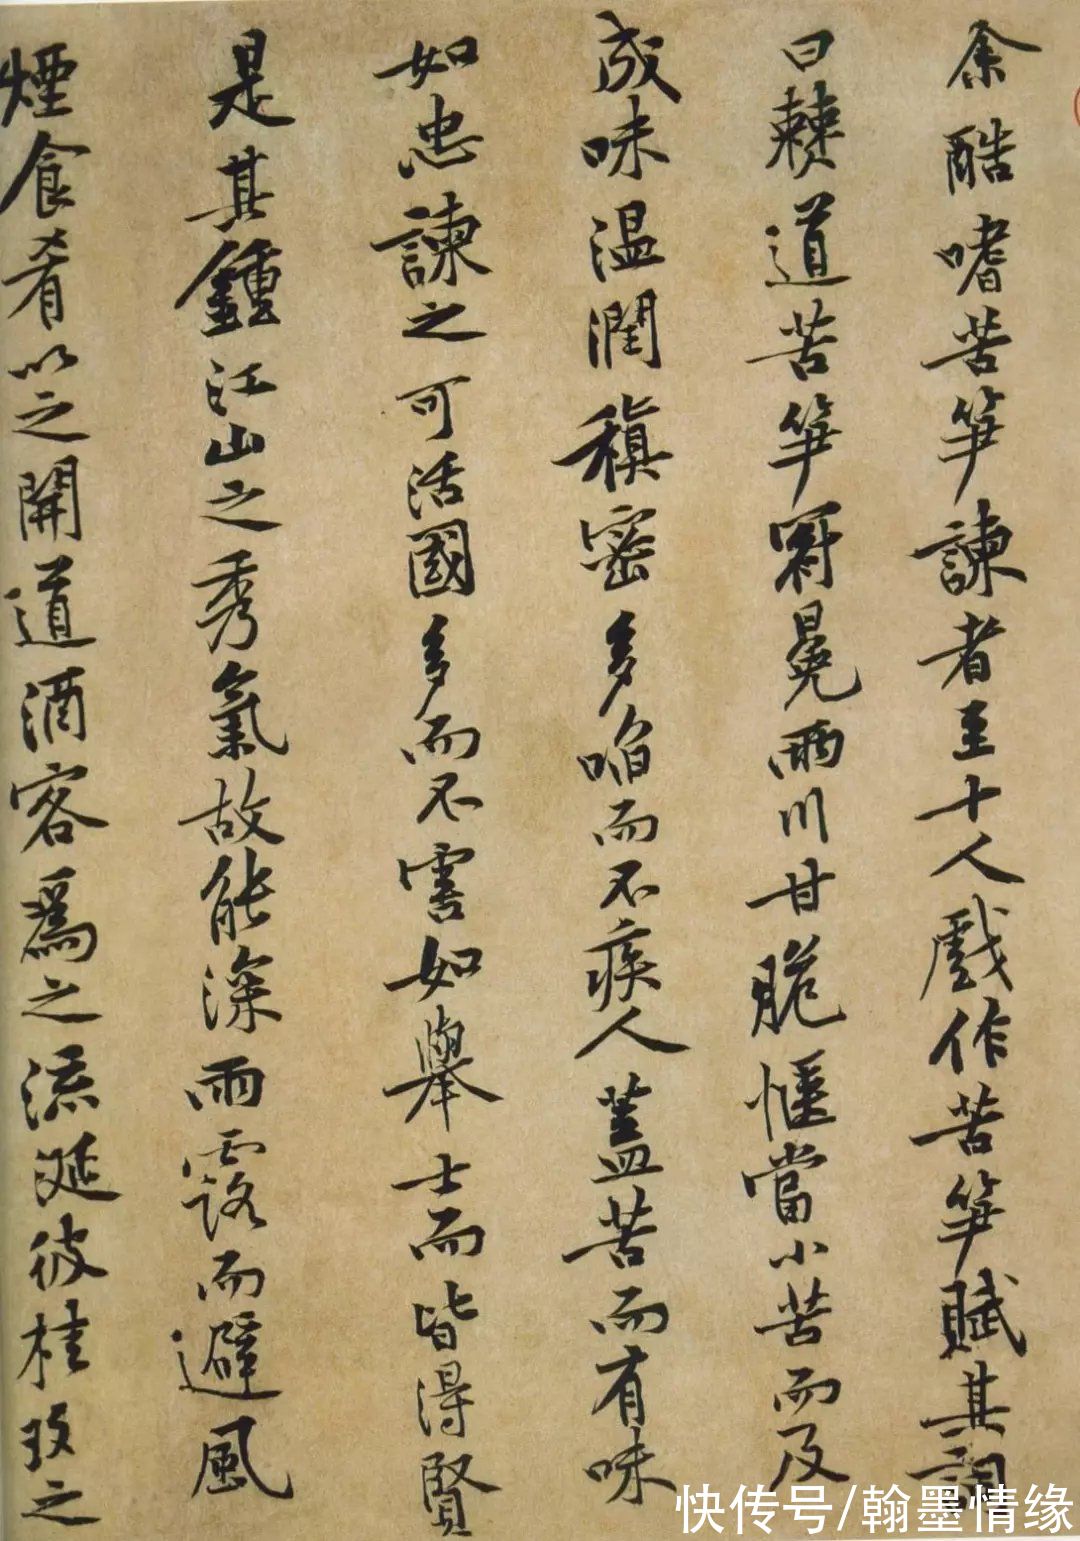 余酷嗜苦笋諫者至十人戲作苦笋賦其詞
曰僰道苦笋冠冕兩川甘脆愜當小苦而及
成味温潤稹密多啗而不疾人蓋苦而有味
如忠諫之可活國多而不害如舉士而皆得賢
是其鍾江山之秀氣故能深雨露而避風
煙食肴以之開道酒客爲之流涎彼桂玫之
快传号/翰墨情缘